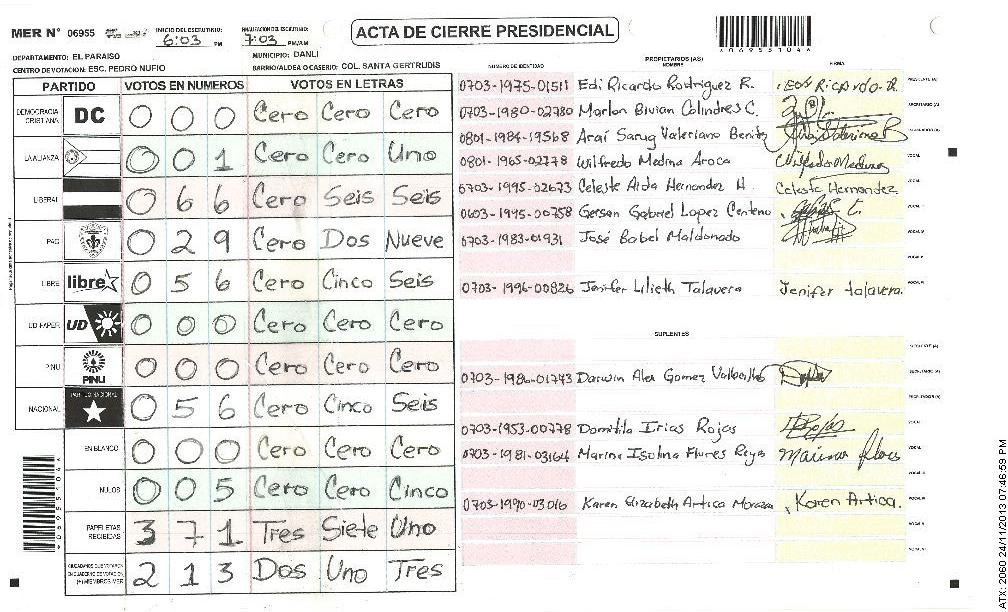 MER N° 06955
INICIO DEL ESCRUTINIO: 6:03 PM
FINALIZACION DEL ESCRUTINIO: 7:03 PM/AM
ACTA DE CIERRE PRESIDENCIAL
*06955104*
DEPARTAMENTO: EL PARAISO
MUNICIPIO: DANLI
CENTRO DE VOTACION: ESC. PEDRO NUFIO
BARRIO/ALDEA O CASERIO: COL. SANTA GERTRUDIS
PARTIDO VOTOS EN NUMEROS VOTOS EN LETRAS
DEMOCRACIA CRISTIANA DC 0 0 0 Cero Cero Cero
LA ALIANZA 0 0 1 Cero Cero Uno
LIBERAL 0 6 6 Cero Seis Seis
PAC 0 2 9 Cero Dos Nueve
LIBRE libre 0 5 6 Cero Cinco Seis
UD-FAPER UD 0 0 0 Cero Cero Cero
PINU PINU 0 0 0 Cero Cero Cero
NACIONAL PARTIDO NACIONAL 0 5 6 Cero Cinco Seis
EN BLANCO 0 0 0 Cero Cero Cero
NULOS 0 0 5 Cero Cero Cinco
PAPELETAS RECIBIDAS 3 7 1 Tres Siete Uno
CIUDADANOS QUE VOTARON EN CUADERNO DE VOTACION (+) MIEMBROS MER 2 1 3 Dos Uno Tres
PROPIETARIOS (AS)
NUMERO DE IDENTIDAD NOMBRE FIRMA
0703-1975-01511 Edi Ricardo Rodriguez R. EDY RICARDO R. PRESIDENTE (A)
0703-1980-02780 Marlon Bivian Colindres C. SECRETARIO (A)
0801-1984-19568 Arai Sarug Valeriano Benitez
0801-1965-02778 Wilfredo Medina Aroca Wilfredo Medina VOCAL
0703-1995-02673 Celeste Aida Hernandez H. Celeste Hernandez VOCAL
0603-1995-00758 Gerson Gabriel Lopez Centeno VOCAL
0703-1983-01931 José Babel Maldonado VOCAL
0703-1996-00826 Jenifer Lilieth Talavera Jenifer talavera. VOCAL
SUPLENTES
0703-1986-01743 Darwin Alex Gomez Vallecillo SECRETARIO (A)
0703-1953-00778 Domitila Irias Rojas Rojas VOCAL
0703-1981-03164 Marina Isolina Flores Reyes Marina flores VOCAL
0703-1990-03016 Karen Elizabeth Artica Morazan Karen Artica. VOCAL
ATX: 2060 24/11/2013 07:46:59 PM